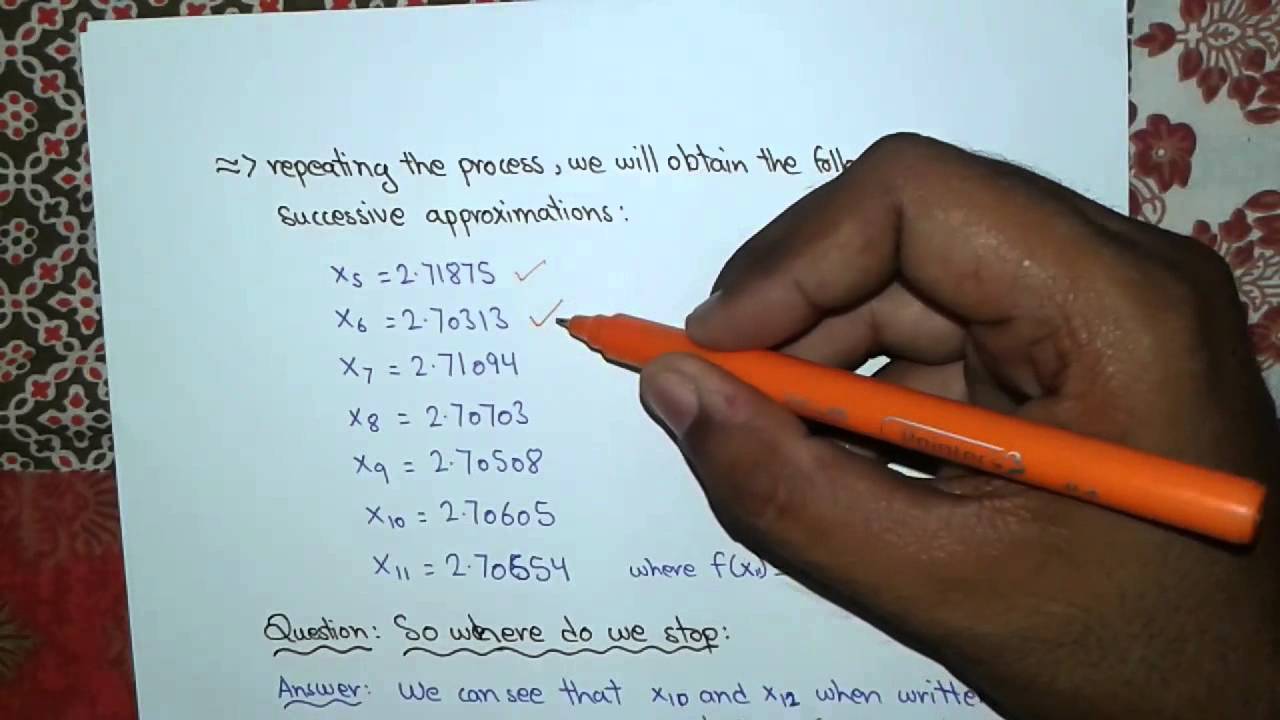 ≈> repeating the process, we will obtain the
successive approximations:
x5 = 2.71875 ✓
x6 = 2.70313 ✓
x7 = 2.71094
x8 = 2.70703
x9 = 2.70508
x10 = 2.70605
x11 = 2.70654 where f(x11)
Question: So where do we stop:
Answer: We can see that x10 and x12 when
Pointer